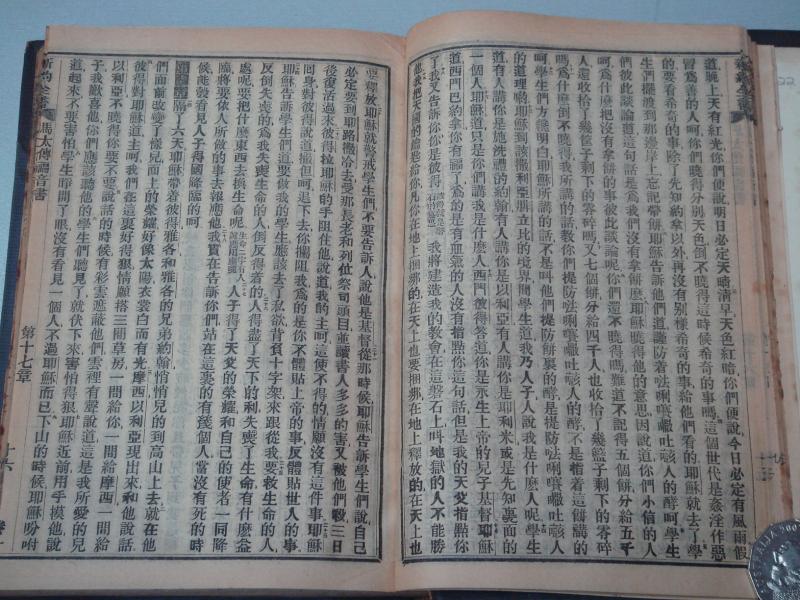 新約全書
道晚上天有紅光你們便說明日必定天晴清早天色紅暗你們便說今日必定有風雨假
冒爲善的人呵你們曉得分別天色倒不曉得這時候希奇的事嗎這個世代是姦淫作惡
的要看希奇的事除了先知約拿以外再沒有別樣希奇的事給他們看的耶穌就去了學
生們擺渡到那邊岸上忘記帶餅耶穌告訴他們道謹防着人的酵呵學生
們彼此談論道這句話是爲我們沒有拿餅麼耶穌曉得他的意思因說道你們小信的人
呵爲什麼把沒有拿餅的事彼此談論呢你們還不曉得嗎難道不記得五個餅分給五千
人還收拾了幾筐子剩下的零碎嗎又七個餅分給四千人也收拾了幾籃子剩下的零碎
嗎爲什麼倒不曉得我所講的話教你們提防人的酵不是指着這餅講的
呵學生們方纔明白耶穌所講的話不是叫他們提防餅裏的酵是提防人
的道理耶穌到該撒利亞腓立比的境界問學生道我乃人子人說我是什麼人呢學生
道有人講你是施洗禮的約翰有人講你是以利亞有人講你是耶利米或是先知裏面的
一個人耶穌道只是你們講我是什麼人西門彼得答道你是永生上帝的兒子基督耶穌
道西門巴約拿你有福了爲的是有血氣的人沒有指點你這句話但是我的天父指點你
了我又告訴你你是彼得我將建造我的教會在這磐石上叫地獄的人不能勝
他我把天國的鑰匙給你凡你在地上捆綁的在天上也要捆綁在地上釋放的在天上也
要釋放耶穌就警戒學生們不要告訴人說他是基督從那時候耶穌告訴學生們說自己
必定要到耶路撒冷去受那長老和列位祭司頭目並讀書人多多的害又被他們殺三日
後復活過來彼得拉耶穌的手阻住他說道我的主呵這使不得的情願沒有這件事耶穌
回身對彼得說道撒但呵退下去你攔阻我爲的是你不體貼上帝的事反體貼世人的事
耶穌告訴學生們道要做我的學生應該去了私欲背負十字架來跟從我要救生命的人
反倒失喪的爲我失喪生命的人倒反得着的人得盡了天下的利失喪了生命有什麼益
處呢把什麼東西去換生命呢人子得了天父的榮耀和自己的使者一同降
臨將要依人所做的事去報應他我實在告訴你們站在這裏的有幾個人當沒有死的時
候能彀看見人子得國降臨的呵
隔了六天耶穌帶着彼得雅各和雅各的兄弟約翰悄悄兒的到高山上去就在他
們面前改變了樣兒面上的榮耀好像太陽衣裳白而有光摩西以利亞現出來和他說話
彼得對耶穌道主呵我們在這裏好得狠情願搭三間草房一間給你一間給摩西一間給
以利亞不曉得你要不要說話的時候有彩雲遮蔽他們雲裡有聲說道這是我所愛的兒
子我歡喜他你們應該聽他的學生們聽見了就伏下來害怕得狠耶穌近前用手摸他說
道起來不要害怕學生睜開了眼沒有看見一個人不過耶穌而已下山的時候耶穌吩咐
新約全書
馬太傳福音書
第十七章
十六